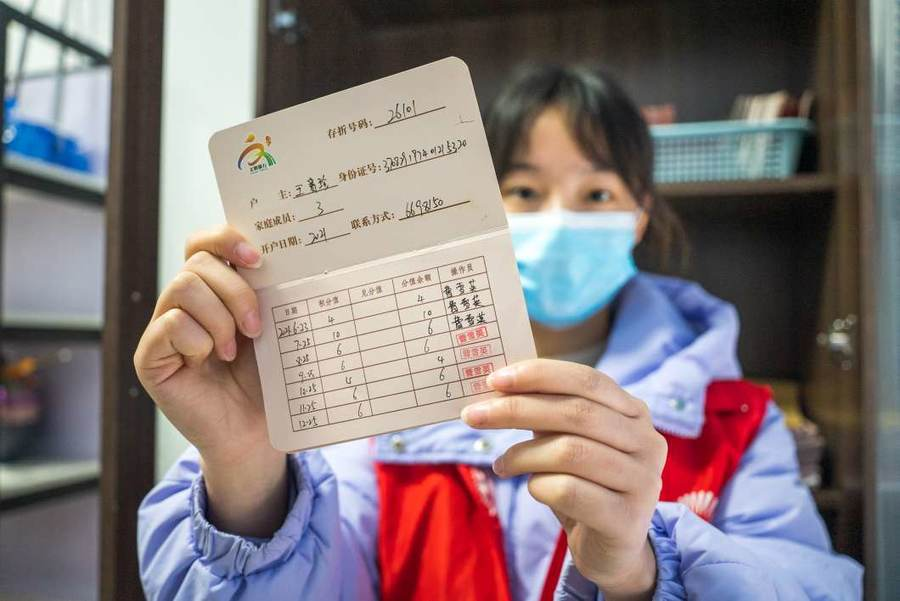 存折号码：26101
户 主：王 身份证号：
家庭成员：3 联系方式：6698150
开户日期：2021
日期 积分值 兑分值 分值余额 操作员
2021.6.23 4 4 曹雪英
7.25 10 10 曹雪英
8.25 6 6 曹雪英
9.25 6 6 曹雪英
4 4 曹雪英
11.25 6 6 曹雪英
12.25 6 6 曹雪英